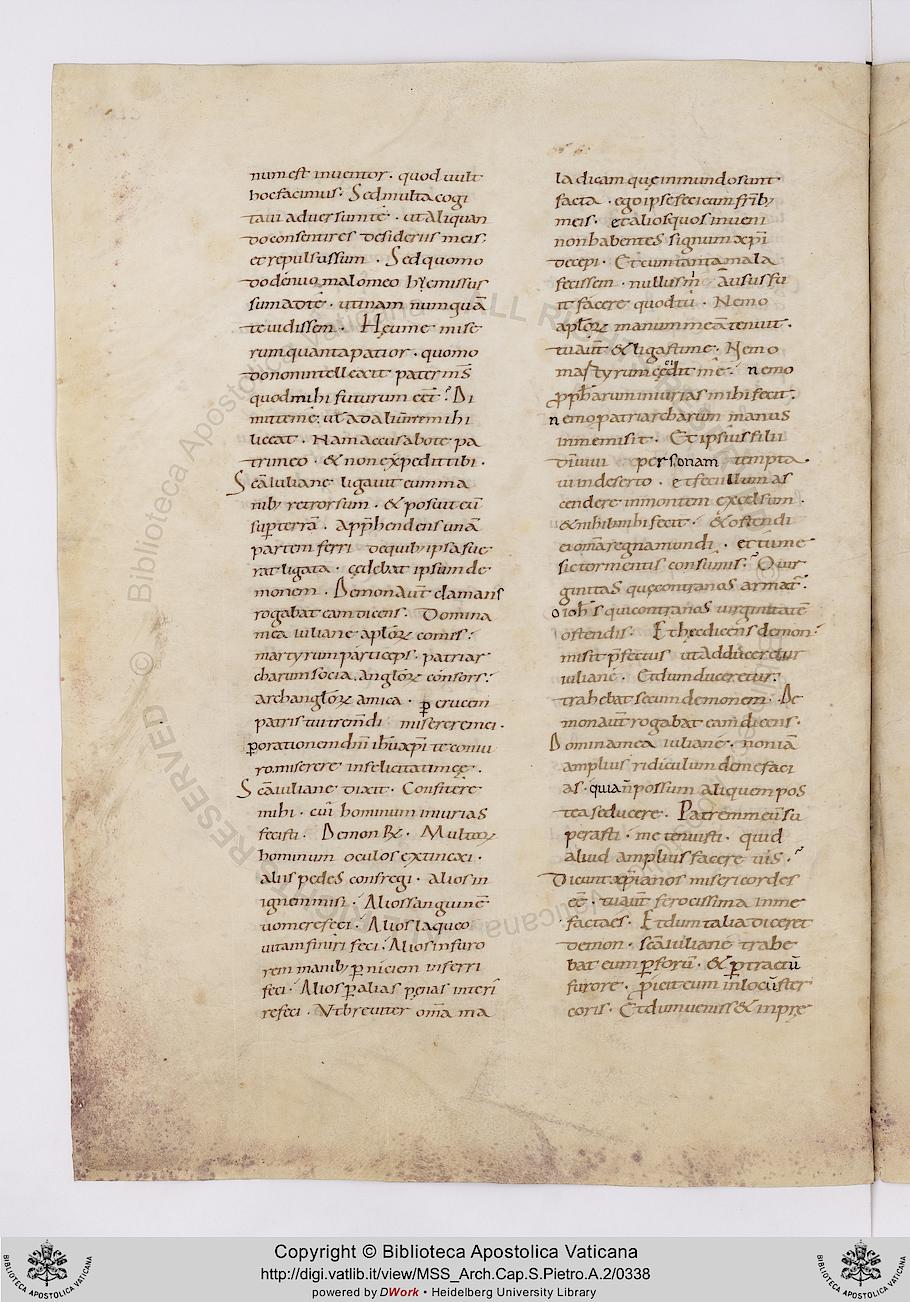 num est inventor · quod vult
hoc facimus · Sed multa cogi
tavi adversum te · ut aliquan
do consentires desideriis meis·
et repulsus sum · Sed quomo
do denuo malo meo hic emissus
sum a dote · utinam numquā
te vidissem · Heu me mise
rum quanta patior · quomo
do non intellexit pater ms̄
quod mihi futurum eēt · Di
mitte me · ut ad alium mihi
liceat · Nam accusabo te pa
tri meo · & non expedit tibi ·
Sc̄a iuliane ligavit eum ma
nib; retrorsum · & posuit eū
sup terrā · apphendens unā
partem ferri de quib; ipsa fue
rat ligata · cędebat ipsum de
monem · Demon aut̄ clamans
rogabat eam dicens · Domina
mea iuliane aplōrꝝ comis ·
martyrum particeps · patriar
charum socia · anglōrꝝ consors ·
archanglōrꝝ amica · ꝑ crucem
patris tui tremdi misereremei ·
ꝑ orationem dn̄i ihū xp̄i te coniu
ro miserere infelicitati meę ·
Sc̄a iuliane dixit · Confitere
mihi · cui hominum iniurias
fecisti · Demon Rx · Multorꝝ
hominum oculos extinxi ·
aliis pedes confregi · alios in
ignem misi · Alios sanguinē
vomere feci · Alios laqueo
vitam finiri feci · Alios in furo
rem manib; ꝑniciem inferri
feci · Alios ꝑ alias pęnas interi
re feci · Ut breviter omā ma
la dicam quę in mundo sunt
facta · ego ipse feci cum frīb;
meis · et alios quos inveni
non habentes signum xp̄i
decepi · Et cum tanta mala
fecissem · nullus m̄ ausus fu
it facere quod tū · Nemo
aplōrꝝ manum meā tenuit ·
tu aut̄ & ligasti me · Nemo
martyrum cędit me · nemo
prophārum iniurias mihi fecit ·
nemo patriarcharum manus
in me misit · Et ipsius filii
divini personam tempta
vi in deserto · et feci illum as
cendere in montem excelsum ·
& nihil mihi fecit · & ostendi
ei omā regna mundi · et tu me
sic tormentis consumis · O vir
ginitas quę contra nos armat̄ ·
o iohs̄ qui contra nos virginitatē
ostendis · Et hęc dicens demon ·
misit pfectus ut adduceretur
iuliane · Et dum duceretur ·
trahebat secum demonem · De
mon aut̄ rogabat eam dicens ·
Domina mea iuliane · non iā
amplius ridiculum de me faci
as · quia n̄ possum aliquem pos
tea seducere · Patrem meū su
perasti · me tenuisti · quid
aliud amplius facere vis ·
Dicunt xp̄ianos misericordes
eē · tu aut̄ ferocissima in me
facta es · Et dum talia diceret
demon · sc̄a iuliane trahe
bat eum ꝑ forū · & ꝑtractū
furore · picit eum in locū ster
coris · Et dum veniss& in pre
Copyright © Biblioteca Apostolica Vaticana
http://digi.vatlib.it/view/MSS_Arch.Cap.S.Pietro.A.2/0338
powered by DWork • Heidelberg University Library